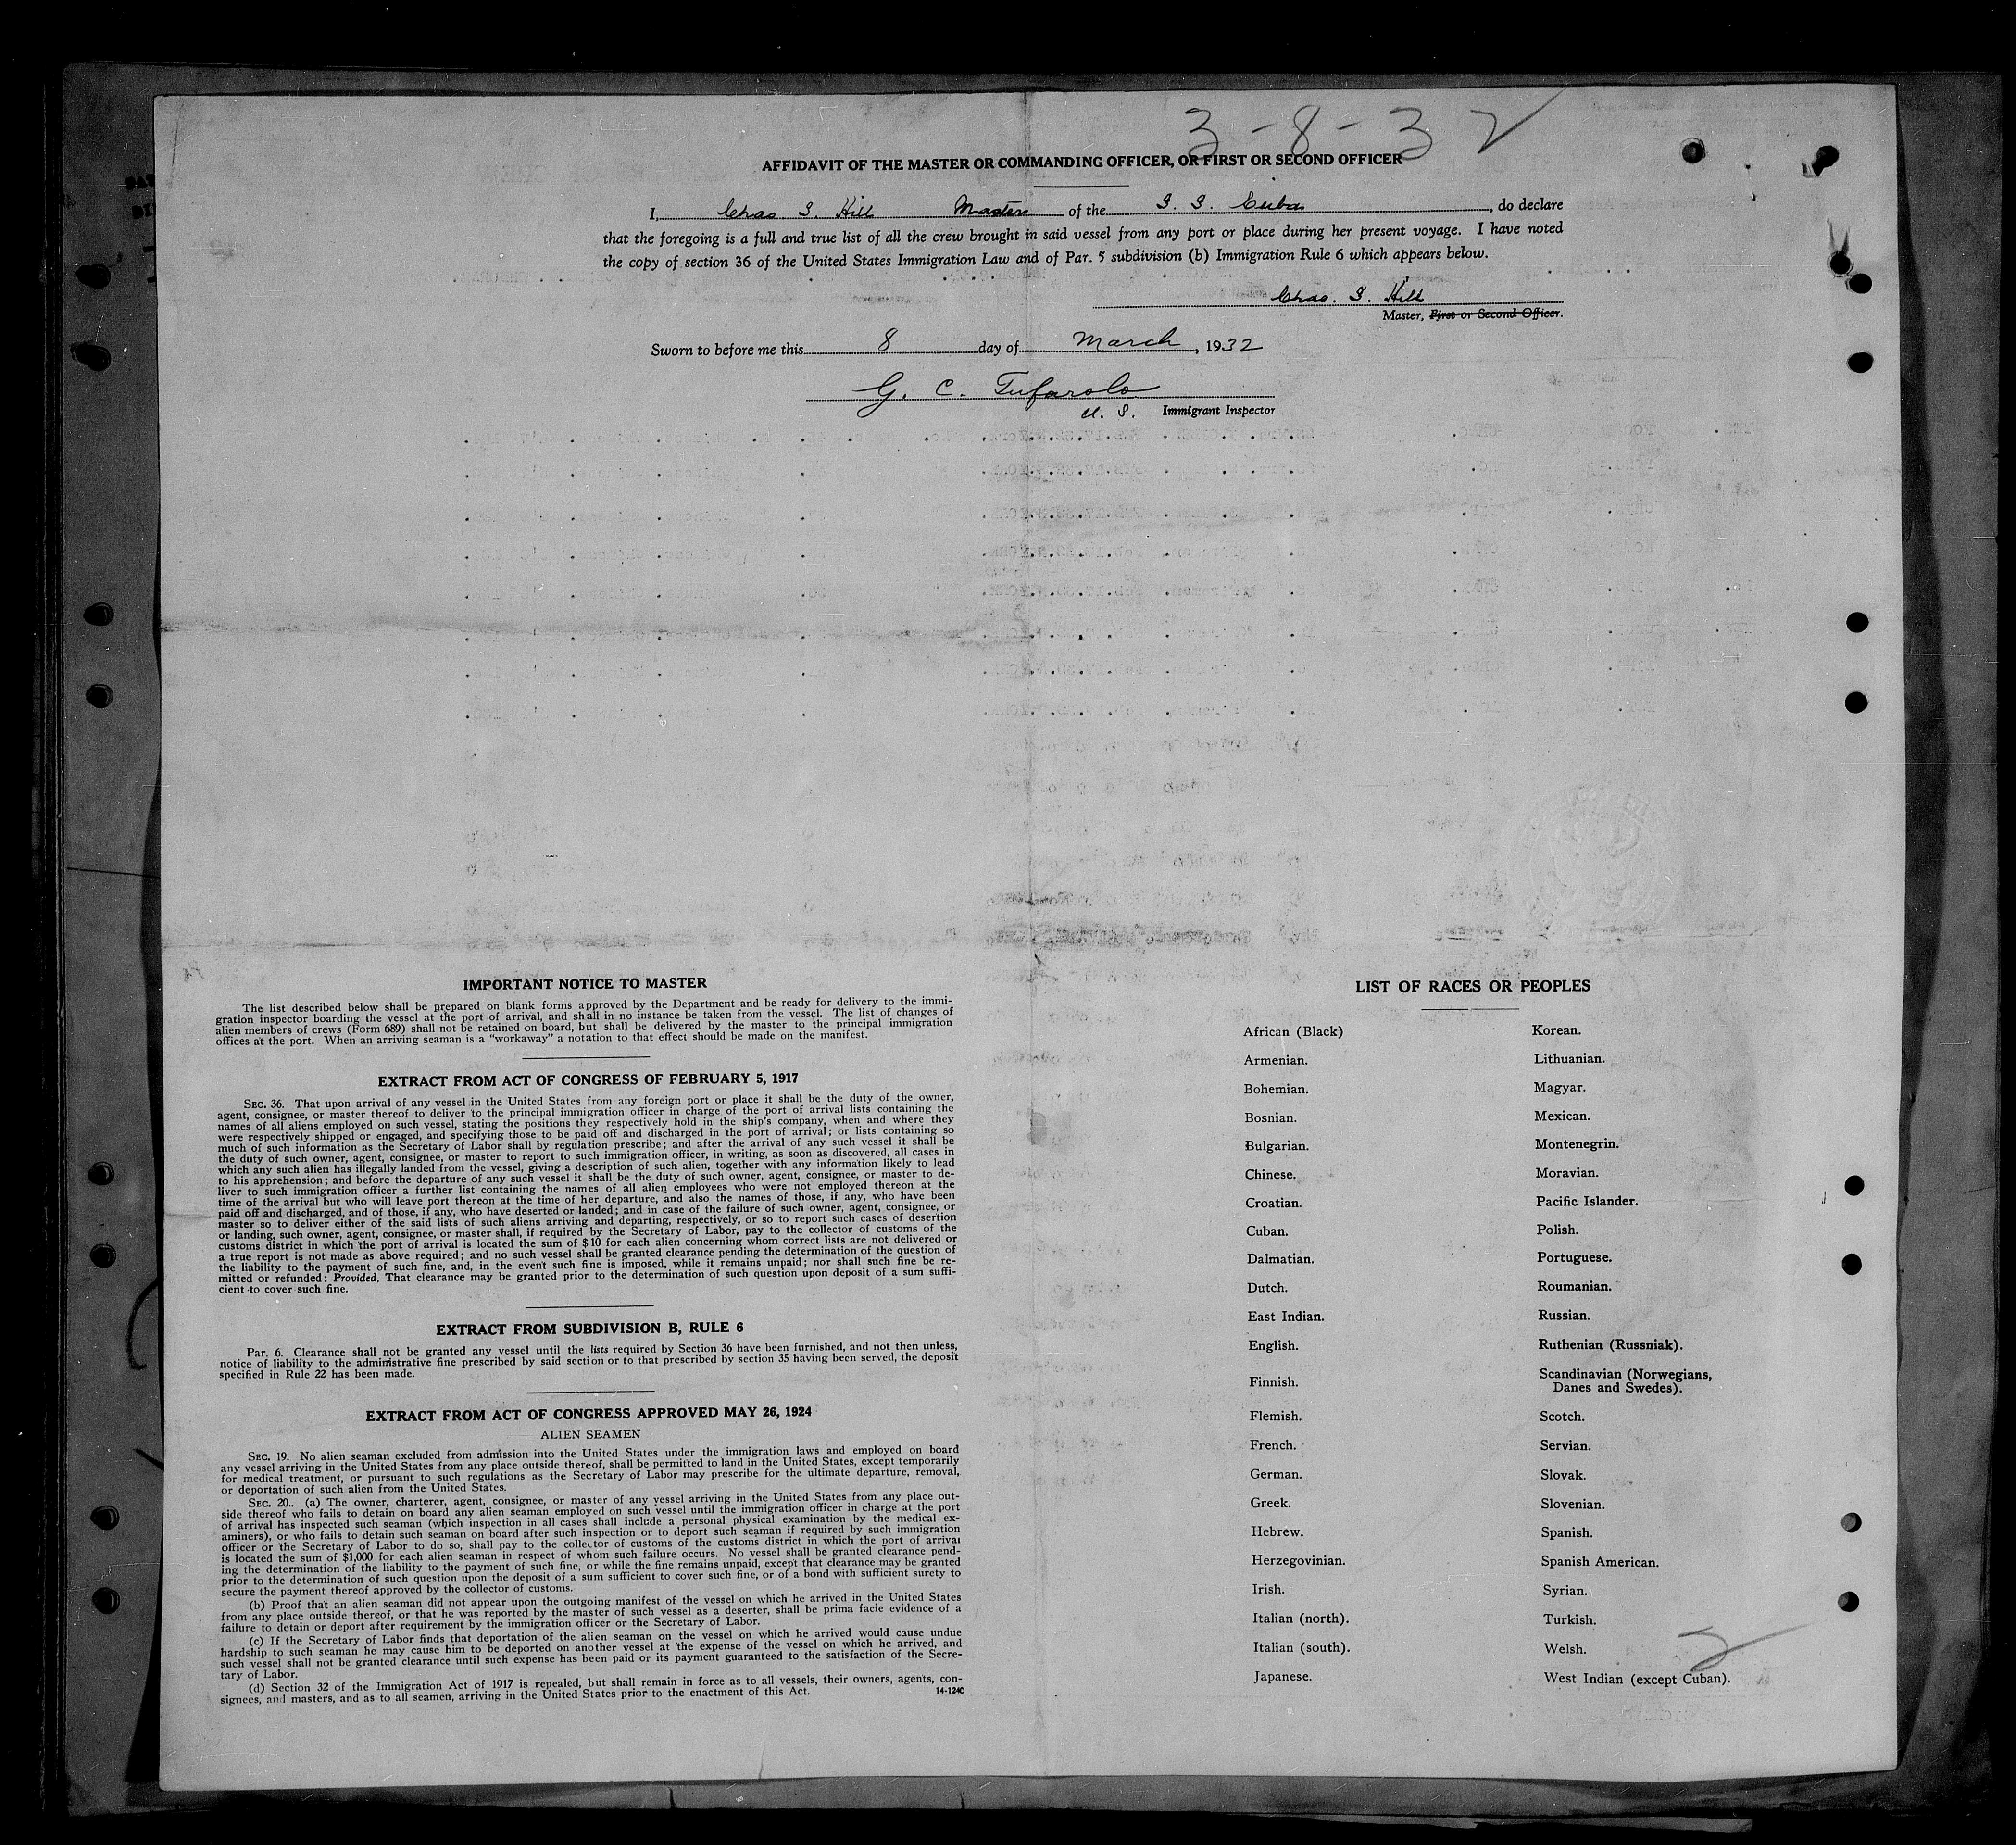 3-8-32
AFFIDAVIT OF THE MASTER OR COMMANDING OFFICER, OR FIRST OR SECOND OFFICER
I, Chas S. Hill Master of the S. S. Cuba, do declare
that the foregoing is a full and true list of all the crew brought in said vessel from any port or place during her present voyage. I have noted
the copy of section 36 of the United States Immigration Law and of Par. 5 subdivision (b) Immigration Rule 6 which appears below.
Chas. S. Hill
Master, First or Second Officer.
Sworn to before me this 8 day of March, 1932
G. C. Tufarolo
U. S. Immigrant Inspector
IMPORTANT NOTICE TO MASTER
The list described below shall be prepared on blank forms approved by the Department and be ready for delivery to the immi-
gration inspector boarding the vessel at the port of arrival, and shall in no instance be taken from the vessel. The list of changes of
alien members of crews (Form 689) shall not be retained on board, but shall be delivered by the master to the principal immigration
offices at the port. When an arriving seaman is a "workaway" a notation to that effect should be made on the manifest.
EXTRACT FROM ACT OF CONGRESS OF FEBRUARY 5, 1917
SEC. 36. That upon arrival of any vessel in the United States from any foreign port or place it shall be the duty of the owner,
agent, consignee, or master thereof to deliver to the principal immigration officer in charge of the port of arrival lists containing the
names of all aliens employed on such vessel, stating the positions they respectively hold in the ship's company, when and where they
were respectively shipped or engaged, and specifying those to be paid off and discharged in the port of arrival; or lists containing so
much of such information as the Secretary of Labor shall by regulation prescribe; and after the arrival of any such vessel it shall be
the duty of such owner, agent, consignee, or master to report to such immigration officer, in writing, as soon as discovered, all cases in
which any such alien has illegally landed from the vessel, giving a description of such alien, together with any information likely to lead
to his apprehension; and before the departure of any such vessel it shall be the duty of such owner, agent, consignee, or master to de-
liver to such immigration officer a further list containing the names of all alien employees who were not employed thereon at the
time of the arrival but who will leave port thereon at the time of her departure, and also the names of those, if any, who have been
paid off and discharged, and of those, if any, who have deserted or landed; and in case of the failure of such owner, agent, consignee, or
master so to deliver either of the said lists of such aliens arriving and departing, respectively, or so to report such cases of desertion
or landing, such owner, agent, consignee, or master shall, if required by the Secretary of Labor, pay to the collector of customs of the
customs district in which the port of arrival is located the sum of $10 for each alien concerning whom correct lists are not delivered or
a true report is not made as above required; and no such vessel shall be granted clearance pending the determination of the question of
the liability to the payment of such fine, and, in the event such fine is imposed, while it remains unpaid; nor shall such fine be re-
mitted or refunded: Provided, That clearance may be granted prior to the determination of such question upon deposit of a sum suffi-
cient to cover such fine.
EXTRACT FROM SUBDIVISION B, RULE 6
Par. 6. Clearance shall not be granted any vessel until the lists required by Section 36 have been furnished, and not then unless,
notice of liability to the administrative fine prescribed by said section or to that prescribed by section 35 having been served, the deposit
specified in Rule 22 has been made.
EXTRACT FROM ACT OF CONGRESS APPROVED MAY 26, 1924
ALIEN SEAMEN
SEC. 19. No alien seaman excluded from admission into the United States under the immigration laws and employed on board
any vessel arriving in the United States from any place outside thereof, shall be permitted to land in the United States, except temporarily
for medical treatment, or pursuant to such regulations as the Secretary of Labor may prescribe for the ultimate departure, removal,
or deportation of such alien from the United States.
SEC. 20. (a) The owner, charterer, agent, consignee, or master of any vessel arriving in the United States from any place out-
side thereof who fails to detain on board any alien seaman employed on such vessel until the immigration officer in charge at the port
of arrival has inspected such seaman (which inspection in all cases shall include a personal physical examination by the medical ex-
aminers), or who fails to detain such seaman on board after such inspection or to deport such seaman if required by such immigration
officer or the Secretary of Labor to do so, shall pay to the collector of customs of the customs district in which the port of arrival
is located the sum of $1,000 for each alien seaman in respect of whom such failure occurs. No vessel shall be granted clearance pend-
ing the determination of the liability to the payment of such fine, or while the fine remains unpaid, except that clearance may be granted
prior to the determination of such question upon the deposit of a sum sufficient to cover such fine, or of a bond with sufficient surety to
secure the payment thereof approved by the collector of customs.
(b) Proof that an alien seaman did not appear upon the outgoing manifest of the vessel on which he arrived in the United States
from any place outside thereof, or that he was reported by the master of such vessel as a deserter, shall be prima facie evidence of a
failure to detain or deport after requirement by the immigration officer or the Secretary of Labor.
(c) If the Secretary of Labor finds that deportation of the alien seaman on the vessel on which he arrived would cause undue
hardship to such seaman he may cause him to be deported on another vessel at the expense of the vessel on which he arrived, and
such vessel shall not be granted clearance until such expense has been paid or its payment guaranteed to the satisfaction of the Secre-
tary of Labor.
(d) Section 32 of the Immigration Act of 1917 is repealed, but shall remain in force as to all vessels, their owners, agents, con-
signees, and masters, and as to all seamen, arriving in the United States prior to the enactment of this Act. 14-1240
LIST OF RACES OR PEOPLES
African (Black)
Armenian.
Bohemian.
Bosnian.
Bulgarian.
Chinese.
Croatian.
Cuban.
Dalmatian.
Dutch.
East Indian.
English.
Finnish.
Flemish.
French.
German.
Greek.
Hebrew.
Herzegovinian.
Irish.
Italian (north).
Italian (south).
Japanese.
Korean.
Lithuanian.
Magyar.
Mexican.
Montenegrin.
Moravian.
Pacific Islander.
Polish.
Portuguese.
Roumanian.
Russian.
Ruthenian (Russniak).
Scandinavian (Norwegians,
Danes and Swedes).
Scotch.
Servian.
Slovak.
Slovenian.
Spanish.
Spanish American.
Syrian.
Turkish.
Welsh.
West Indian (except Cuban).